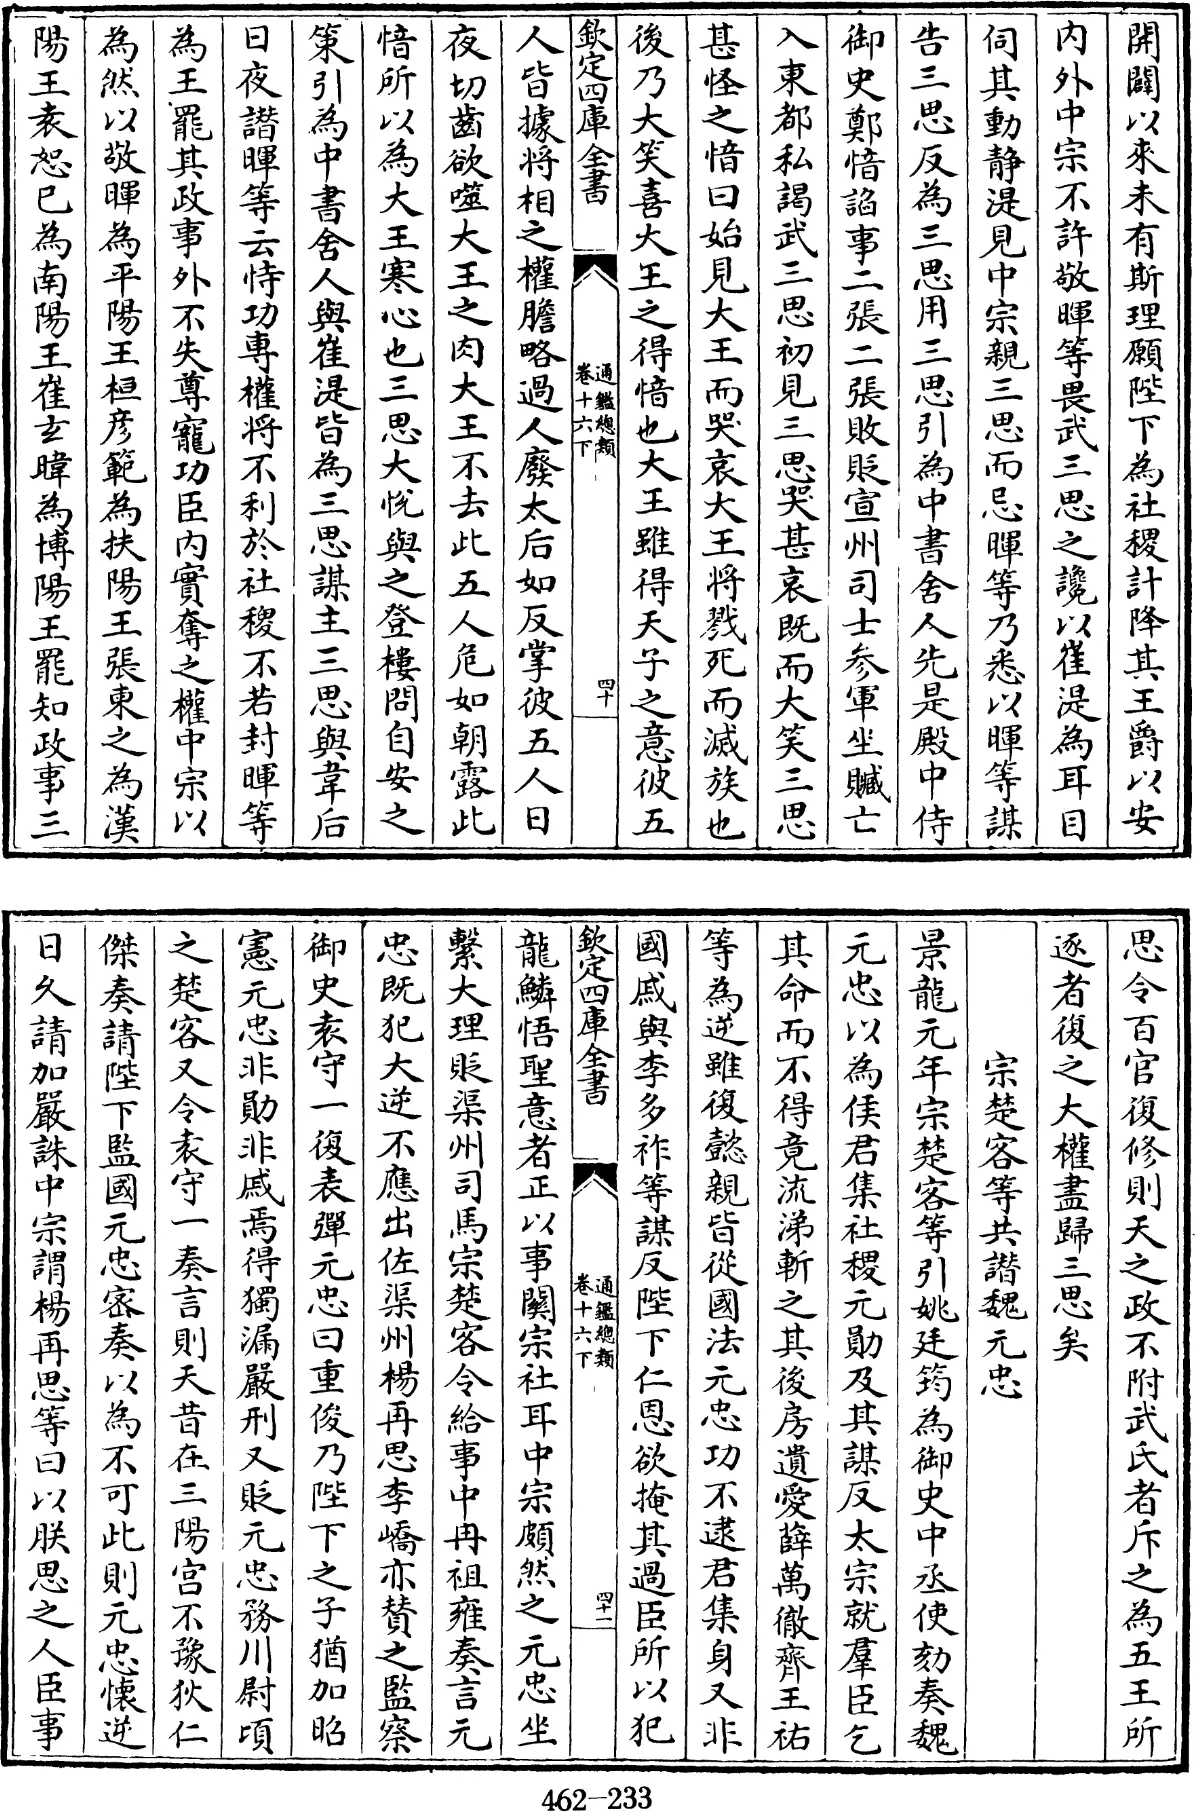 開闢以來未有斯理願陛下為社稷計降其王爵以安
内外中宗不許敬暉等畏武三思之讒以崔湜為耳目
伺其動静湜見中宗親三思而忌暉等乃悉以暉等謀
告三思反為三思用三思引為中書舍人先是殿中侍
御史鄭愔諂事二張二張敗貶宣州司士參軍坐贓亡
入東都私謁武三思初見三思哭甚哀既而大笑三思
甚怪之愔曰始見大王而哭哀大王將戮死而滅族也
後乃大笑喜大王之得愔也大王雖得天子之意彼五
欽定四庫全書
通鑑總類
卷十六下
四十
人皆據將相之權膽略過人廢太后如反掌彼五人日
夜切齒欲噬大王之肉大王不去此五人危如朝露此
愔所以為大王寒心也三思大悅與之登樓問自安之
策引為中書舍人與崔湜皆為三思謀主三思與韋后
日夜譖暉等云恃功專權將不利於社稷不若封暉等
為王罷其政事外不失尊寵功臣内實奪之權中宗以
為然以敬暉為平陽王桓彥範為扶陽王張柬之為漢
陽王袁恕已為南陽王崔玄暐為博陽王罷知政事三
思令百官復修則天之政不附武氏者斥之為五王所
逐者復之大權盡歸三思矣
宗楚客等共譖魏元忠
景龍元年宗楚客等引姚廷筠為御史中丞使劾奏魏
元忠以為侯君集社稷元勛及其謀反太宗就羣臣乞
其命而不得竟流涕斬之其後房遺愛薛萬徹齊王祐
等為逆雖復懿親皆從國法元忠功不逮君集身又非
國戚與李多祚等謀反陛下仁恩欲掩其過臣所以犯
欽定四庫全書
通鑑總類
卷十六下
四十一
龍鱗悟聖意者正以事關宗社耳中宗頗然之元忠坐
繫大理貶渠州司馬宗楚客令給事中冉祖雍奏言元
忠既犯大逆不應出佐渠州楊再思李嶠亦贊之監察
御史袁守一復表彈元忠曰重俊乃陛下之子猶加昭
憲元忠非勛非戚焉得獨漏嚴刑又貶元忠務川尉頃
之楚客又令袁守一奏言則天昔在三陽宮不豫狄仁
傑奏請陛下監國元忠密奏以為不可此則元忠懷逆
日久請加嚴誅中宗謂楊再思等曰以朕思之人臣事
462-233